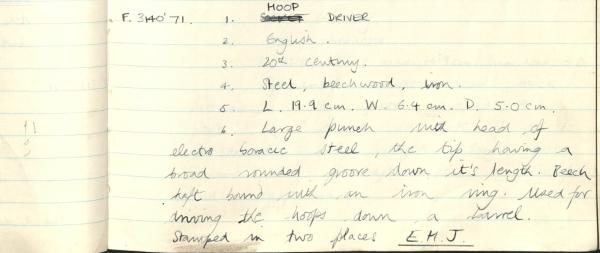 HOOP
F. 3140'71. 1. DRIVER
2. English.
3. 20th century.
4. Steel, beechwood, iron.
5. L. 19.9 cm. W. 6.4 cm. D. 5.0 cm.
6. Large punch with head of
electro boracic steel, the tip having a
broad rounded groove down it's length. Beech
haft bound with an iron ring. Used for
driving the hoops down a barrel.
Stamped in two places E.H.J.